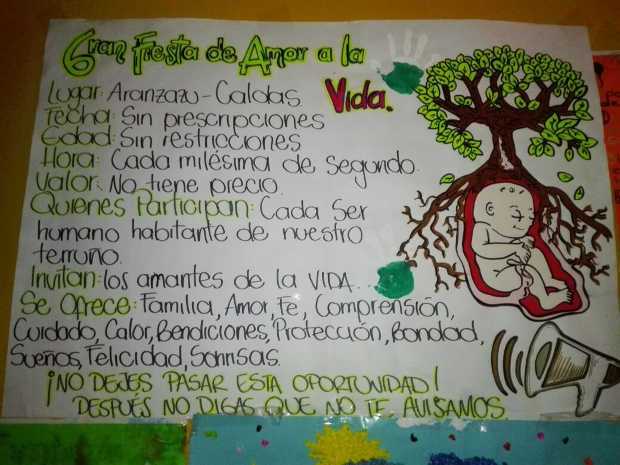 Gran Fiesta de Amor a la
Vida.
Lugar: Aranzazu - Caldas
Fecha: Sin prescripciones
Edad: Sin restricciones
Hora: Cada milésima de segundo.
Valor: No tiene precio.
Quienes Participan: Cada Ser
humano habitante de nuestro
terruño.
Invitan: los amantes de la VIDA...
Se Ofrece: Familia, Amor, Fe, Comprensión,
Cuidado, Calor, Bendiciones, Protección, Bondad,
Sueños, Felicidad, Sonrisas.
¡NO DEJES PASAR ESTA OPORTUNIDAD!
DESPUÉS NO DIGAS QUE NO TE AVISAMOS